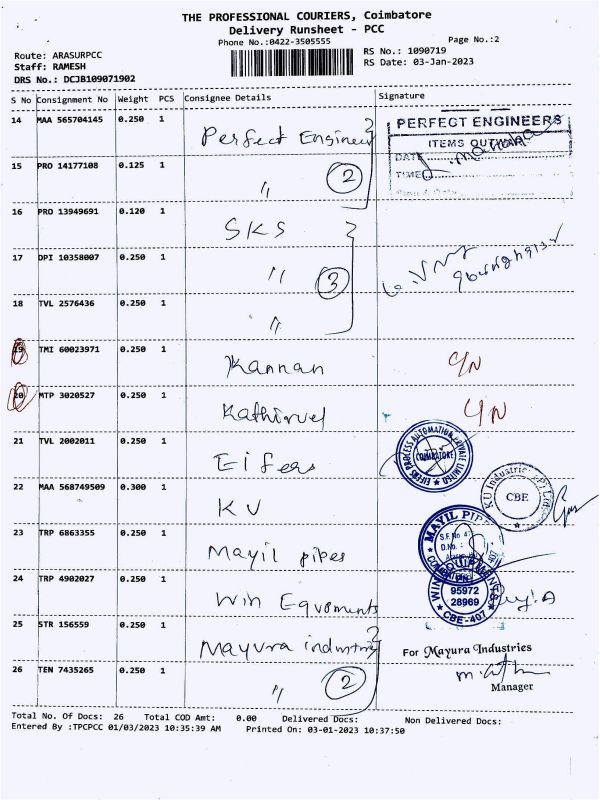 THE PROFESSIONAL COURIERS, Coimbatore
Delivery Runsheet - PCC
Phone No.:0422-3505555
Page No.:2
Route: ARASURPCC
RS No.: 1090719
Staff: RAMESH
RS Date: 03-Jan-2023
DRS No.: DCJB109071902
S No Consignment No Weight PCS Consignee Details Signature
14 MAA 565704145 0.250 1 Perfect Engineer
PERFECT ENGINEERS
ITEMS OUTWAR
DATE
TIME
15 PRO 14177108 0.125 1 " 2
16 PRO 13949691 0.120 1 SKS
17 DPI 10358007 0.250 1 " 3
18 TVL 2576436 0.250 1 "
19 TMI 60023971 0.250 1 Kannan
20 MTP 3020527 0.250 1 Kathirvel
21 TVL 2002011 0.250 1 Eifers
EIFERS PROCESS AUTOMATION PRIVATE LIMITED
COIMBATORE
22 MAA 568749509 0.300 1 KV
KU Industries (P) Ltd
CBE
23 TRP 6863355 0.250 1 Mayil pipes
MAYIL PIPE
S.F.No
D.No.:
24 TRP 4902027 0.250 1 Win Equvements
WIN EQUIPMENTS
95972
28969
CBE-407
25 STR 156559 0.250 1 Mayura industry
For Mayura Industries
26 TEN 7435265 0.250 1 " 2
Manager
Total No. Of Docs: 26 Total COD Amt: 0.00 Delivered Docs: Non Delivered Docs:
Entered By :TPCPCC 01/03/2023 10:35:39 AM Printed On: 03-01-2023 10:37:50